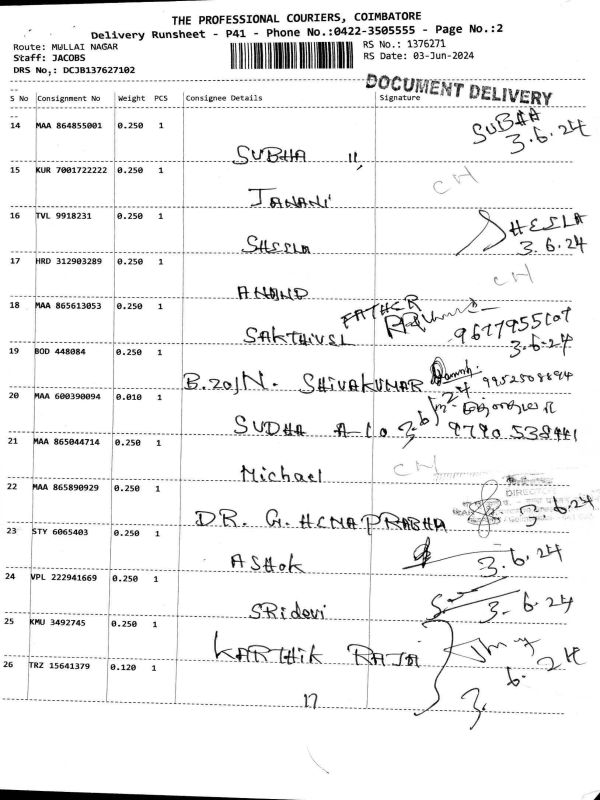 THE PROFESSIONAL COURIERS, COIMBATORE
Delivery Runsheet - P41 - Phone No.:0422-3505555 - Page No.:2
Route: MULLAI NAGAR
Staff: JACOBS
DRS No,: DCJB137627102
RS No.: 1376271
RS Date: 03-Jun-2024
DOCUMENT DELIVERY
S No Consignment No Weight PCS Consignee Details Signature
14 MAA 864855001 0.250 1
SUBHA 11, SUBHA 3.6.24
15 KUR 7001722222 0.250 1
JANANI CH
16 TVL 9918231 0.250 1
SHEELA SHEELA 3.6.24
17 HRD 312903289 0.250 1
ANAND CH
18 MAA 865613053 0.250 1
SAKTHIVEL FATHER 3.6.24
19 BOD 448084 0.250 1
B.ZOIN. SHIVAKUMAR 9952508894
20 MAA 600390094 0.010 1
SUDHA A 10 3.6.24
21 MAA 865044714 0.250 1
Michael CH
22 MAA 865890929 0.250 1
DR. G. HEMAPRABHA 3.6.24
23 STY 6065403 0.250 1
ASHOK 3.6.24
24 VPL 222941669 0.250 1
SRidevi 3.6.24
25 KMU 3492745 0.250 1
KARTHIK RAJA 3.6.24
26 TRZ 15641379 0.120 1
17